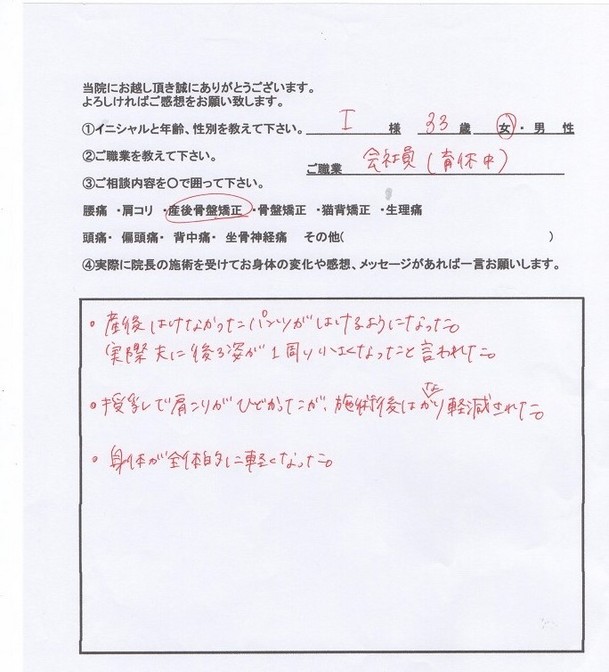 当院にお越し頂き誠にありがとうございます。
よろしければご感想をお願い致します。
①イニシャルと年齢、性別を教えて下さい。 I 様 33 歳 女・男 性
②ご職業を教えて下さい。 ご職業 会社員(育休中)
③ご相談内容を〇で囲って下さい。
腰痛 ・肩コリ ・産後骨盤矯正 ・骨盤矯正 ・猫背矯正 ・生理痛
頭痛・ 偏頭痛・ 背中痛・ 坐骨神経痛 その他( )
④実際に院長の施術を受けてお身体の変化や感想、メッセージがあれば一言お願いします。
・産後はけなかったパンツがはけるようになった。
実際夫に後ろ姿が1周り小さくなったと言われた。
・授乳で肩こりがひどかったが、施術後はかなり軽減された。
・身体が全体的に軽くなった。